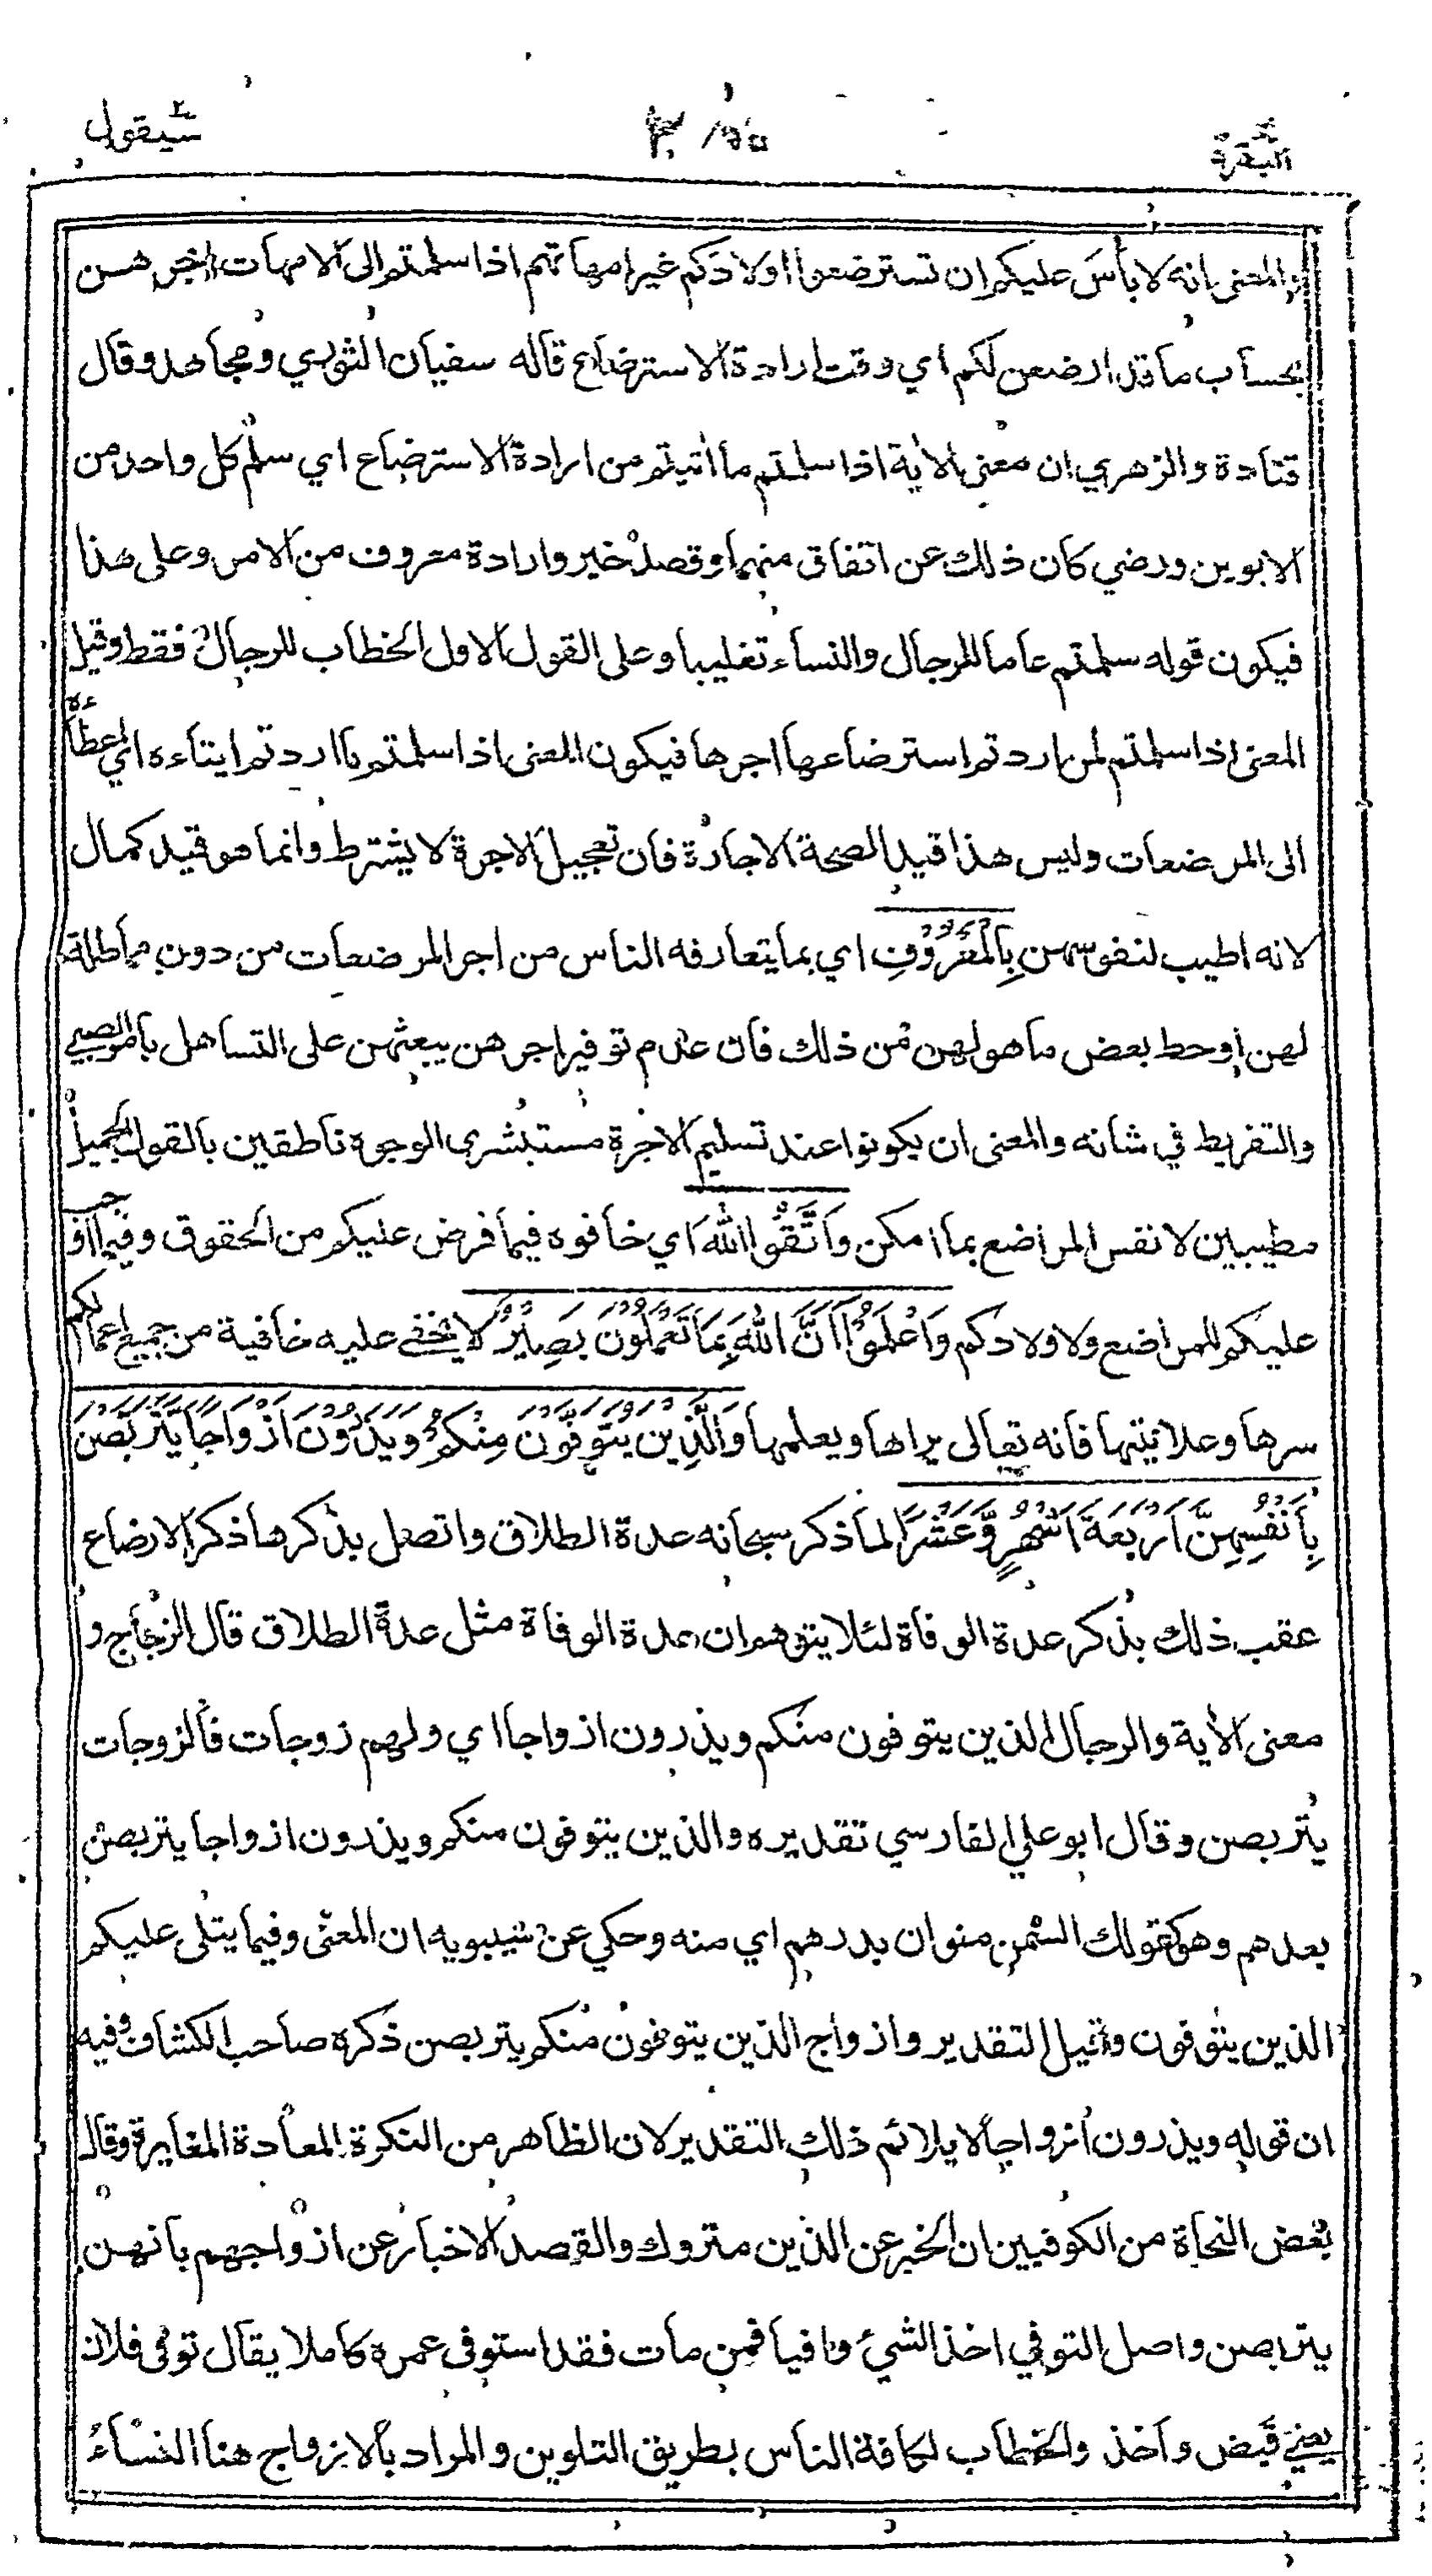 البقرة
سيقول
والمعنى انه لا بأس عليكم ان تسترضعوا اولادكم غير امهاتهم اذا سلمتم الى الامهات اجرهن
بحساب ما قد ارضعن لكم اي وقت ارادة الاسترضاع قاله سفيان الثوري ومجاهد وقال
قتادة والزهري ان معنى الآية اذا سلمتم ما اتيتم من ارادة الاسترضاع اي سلم كل واحد من
الابوين ورضي كان ذلك عن اتفاق منهما وقصد خير وارادة معروف من الامر وعلى هذا
فيكون قوله سلمتم عاما للرجال والنساء تغليبا وعلى القول الاول الخطاب للرجال فقط وقيل
المعنى اذا سلمتم لمن اردتم استرضاعها اجرها فيكون المعنى اذا سلمتم ما اردتم ايتاءه اي اعطاءه
الى المرضعات وليس هذا قيد الصحة الاجارة فان تعجيل الاجرة لا يشترط وانما هو قيد كمال
لانه اطيب لنفوسهن بِالْمَعْرُوْفِ اي بما يتعارفه الناس من اجر المرضعات من دون مماطلة
لهن او حط بعض ما هو لهن من ذلك فان عدم توفير اجرهن يبعثهن على التساهل بامر الصبي
والتفريط في شانه والمعنى ان يكونوا عند تسليم الاجرة مستبشرى الوجوه ناطقين بالقول الجميل
مطيبين لانفس المراضع بما امكن وَاتَّقُوا اللّٰهَ اي خافوه فيما فرض عليكم من الحقوق وفيما اوجب
عليكم للمراضع ولاولادكم وَاعْلَمُوْا اَنَّ اللّٰهَ بِمَا تَعْمَلُوْنَ بَصِيْرٌ لا يخفى عليه خافية من جميع اعمالكم
سرها وعلانيتها فانه تعالى يراها ويعلمها وَالَّذِيْنَ يُتَوَفَّوْنَ مِنْكُمْ وَيَذَرُوْنَ اَزْوَاجًا يَّتَرَبَّصْنَ
بِاَنْفُسِهِنَّ اَرْبَعَةَ اَشْهُرٍ وَّعَشْرًا لما ذكر سبحانه عدة الطلاق واتصل بذكرها ذكر الارضاع
عقب ذلك بذكر عدة الوفاة لئلا يتوهم ان عدة الوفاة مثل عدة الطلاق قال الزجاج و
معنى الآية والرجال الذين يتوفون منكم ويذرون ازواجا اي ولهم زوجات فالزوجات
يتربصن وقال ابو علي الفارسي تقديره والذين يتوفون منكم ويذرون ازواجا يتربصن
بعدهم وهو كقولك السمن منوان بدرهم اي منه وحكي عن سيبويه ان المعنى وفيما يتلى عليكم
الذين يتوفون وقيل التقدير وازواج الذين يتوفون منكم يتربصن ذكره صاحب الكشاف وفيه
ان قوله ويذرون ازواجا لا يلائم ذلك التقدير لان الظاهر من النكرة المعادة المغايرة وقال
بعض النحاة من الكوفيين ان الخبر عن الذين متروك والقصد الاخبار عن ازواجهم بانهن
يتربصن واصل التوفي اخذ الشيء وافيا فمن مات فقد استوفى عمره كاملا يقال توفى فلان
يعني قبض واخذ والخطاب لكافة الناس بطريق التلوين والمراد بالازواج هنا النساء